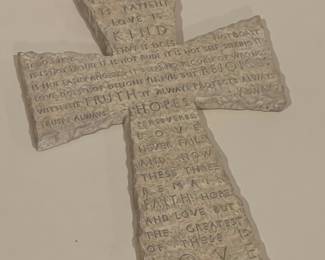 IS PATIENT
LOVE IS
KIND
IT DOES NOT BOAST
IT IS NOT PROUD IT IS NOT RUDE IT IS NOT SELF SEEKING
IT IS NOT EASILY ANGERED IT KEEPS NO RECORD OF WRONGS
LOVE DOES NOT DELIGHT IN EVIL BUT REJOICES
WITH THE TRUTH IT ALWAYS PROTECTS ALWAYS
TRUSTS ALWAYS HOPES ALWAYS
PERSEVERES
LOVE
NEVER FAILS
AND NOW
THESE THREE
REMAIN
FAITH HOPE
AND LOVE BUT
THE GREATEST
OF THESE IS
LOVE